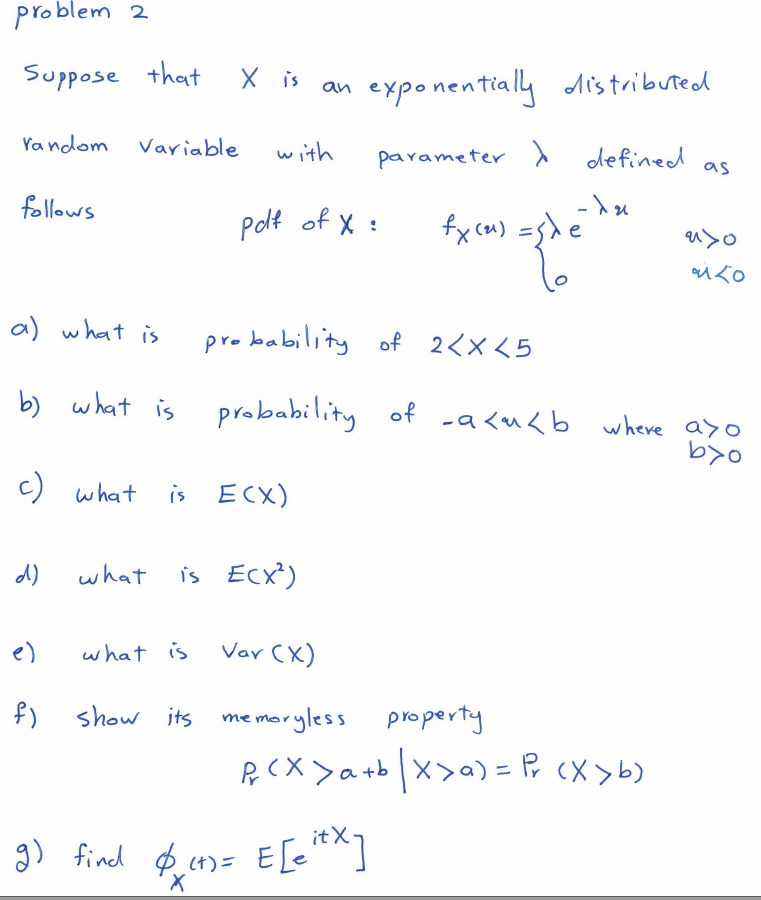 problem 2
Suppose that X is an exponentially distributed
random variable with parameter λ defined as
follows pdf of X : f_X(x) = { λ e^{-λx} x>0
0 x<0
a) what is probability of 2<X<5
b) what is probability of -a<x<b where a>0
b>0
c) what is E(X)
d) what is E(X²)
e) what is Var(X)
f) show its memoryless property
Pr(X>a+b|X>a) = Pr(X>b)
g) find ϕ_X(t) = E[e^{itX}]